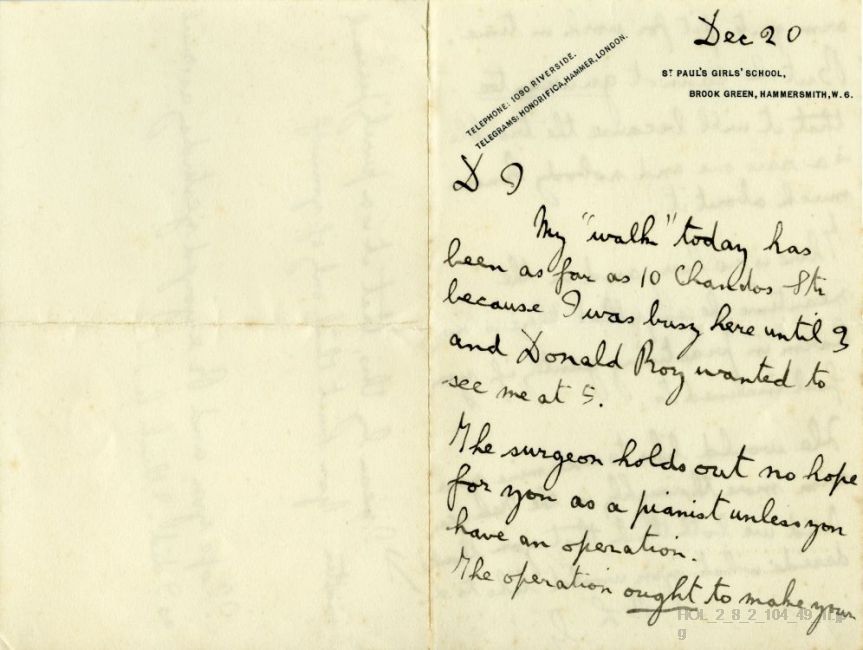 Dec 20
TELEPHONE: 1090 RIVERSIDE.
TELEGRAMS: HONORIFICA, HAMMER, LONDON.
ST PAUL'S GIRLS' SCHOOL,
BROOK GREEN, HAMMERSMITH, W. 6.
D I
My "walk" today has
been as far as 10 Chandos Str
because I was busy here until 3
and Donald Roy wanted to
see me at 5.
The surgeon holds out no hope
for you as a pianist unless you
have an operation.
The operation ought to make your
HOL_2_8_2_104_49_11.jp
g